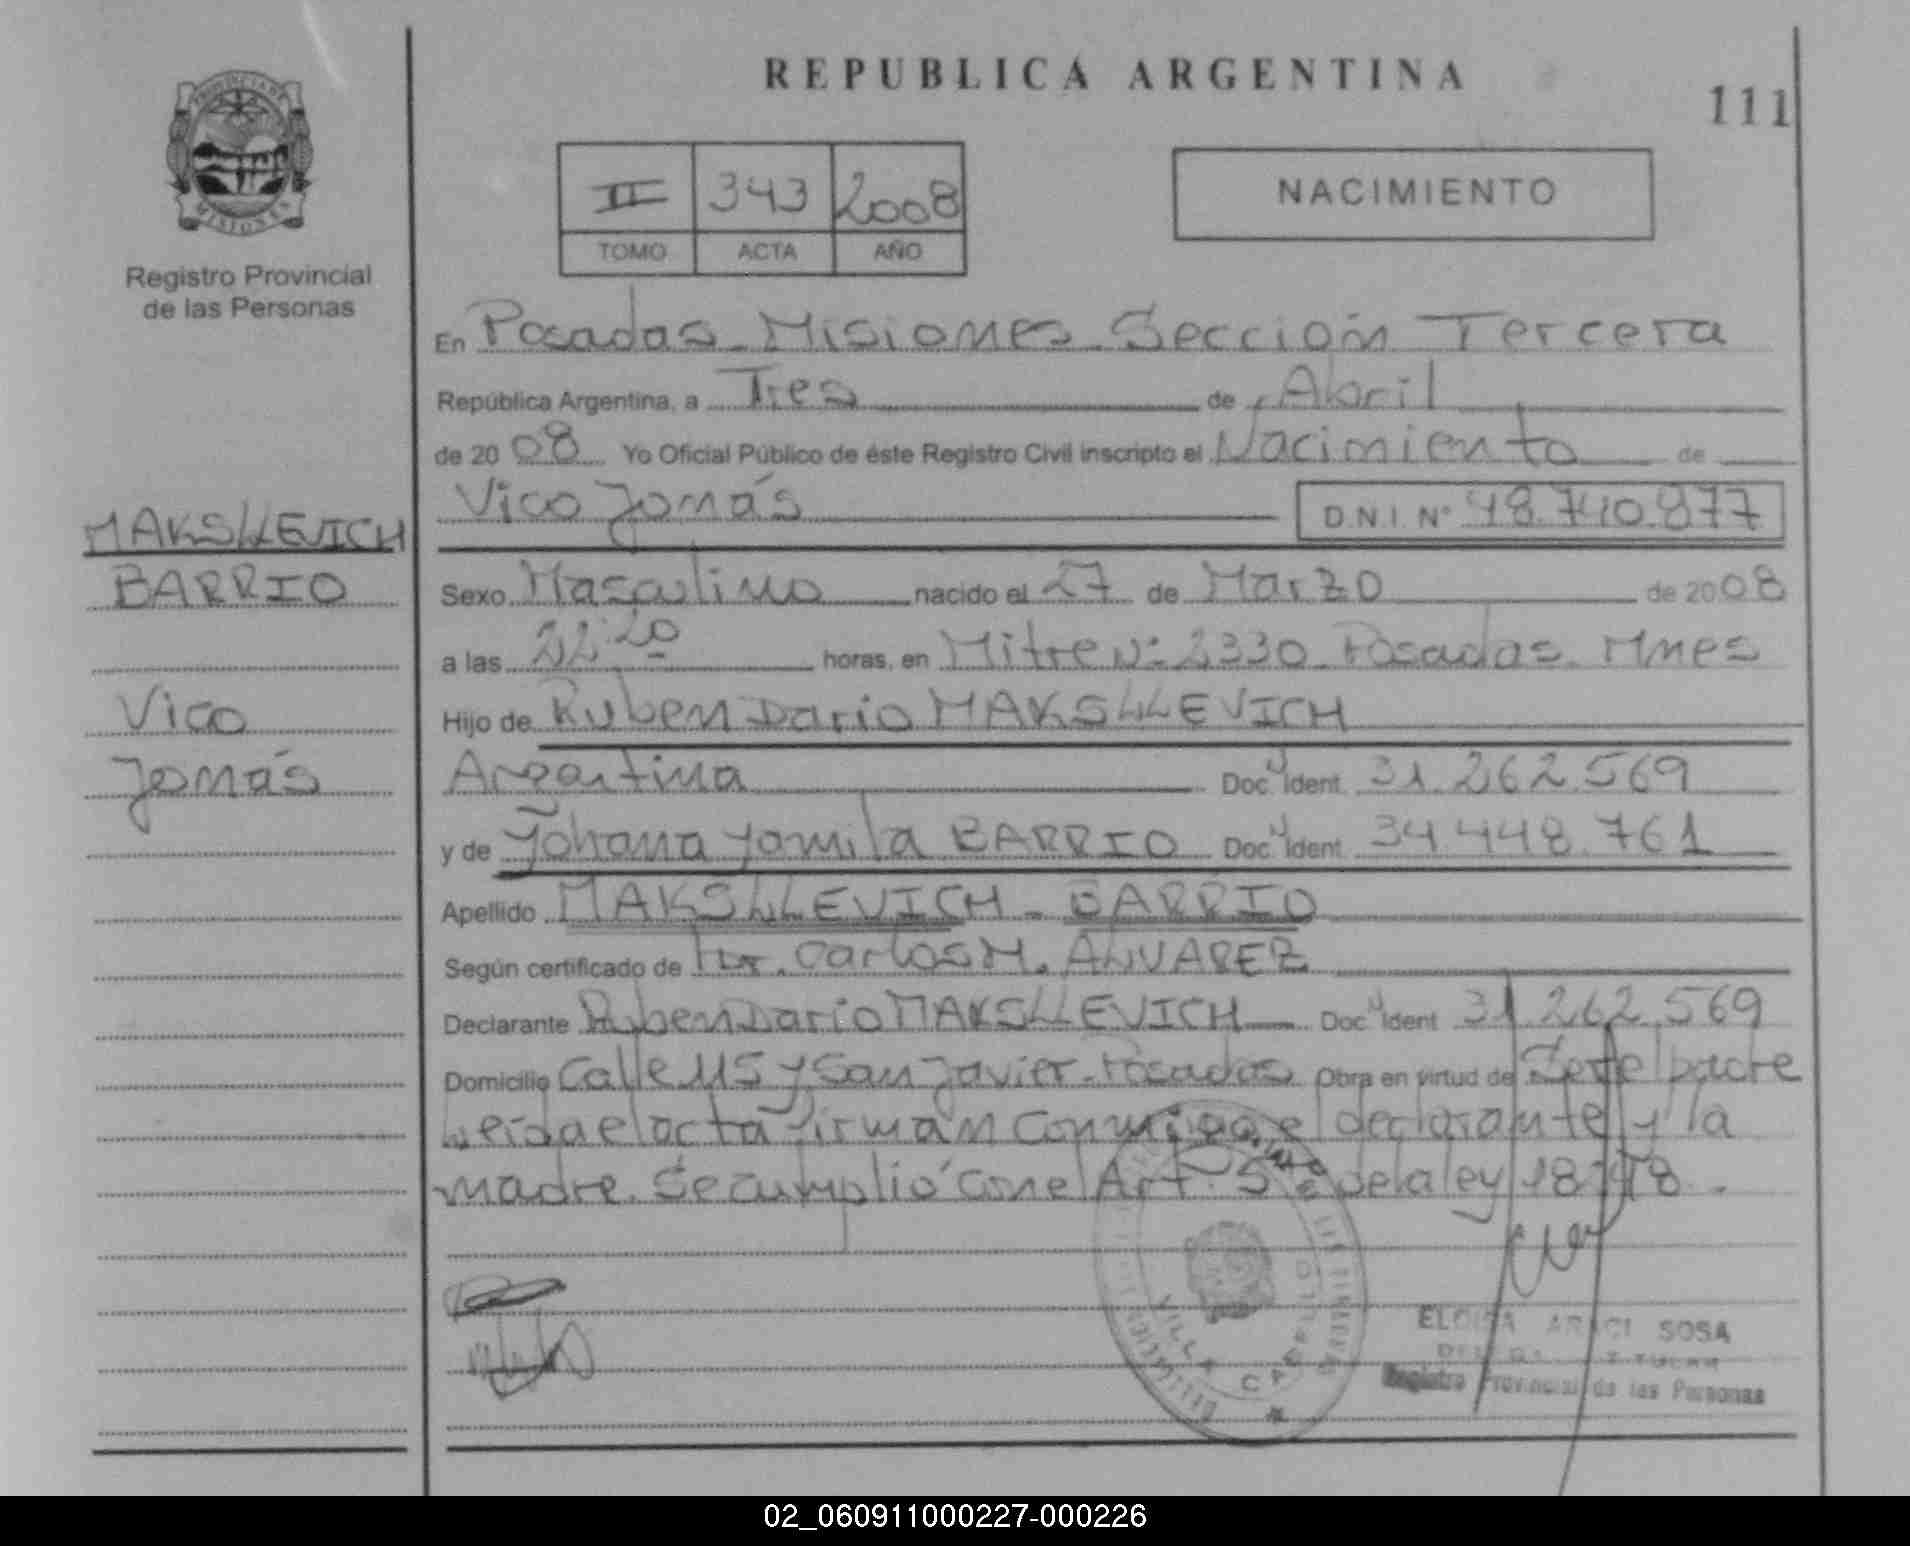 REPUBLICA ARGENTINA
111
PROVINCIA DE
MISIONES
Registro Provincial
de las Personas
II 343 2008
TOMO ACTA AÑO
NACIMIENTO
En Posadas - Misiones - Sección Tercera
República Argentina, a Tres de Abril
de 2008 Yo Oficial Público de éste Registro Civil inscripto el Nacimiento de
Vico Jomás D.N.I. Nº 48.740.877
MAKSLLEVICH
BARRIO
Vico
Jomás
Sexo Masculino nacido el 27 de Marzo de 2008
a las 22:20 horas, en Mitre Nº 2330 Posadas - Mnes
Hijo de Ruben Dario MAKSLLEVICH
Argentina Doc. Ident. 31.262.569
y de Yohana Yamila BARRIO Doc. Ident. 34.448.761
Apellido MAKSLLEVICH - BARRIO
Según certificado de Dr. Carlos M. ALVAREZ
Declarante Ruben Dario MAKSLLEVICH Doc. Ident 31.262.569
Domicilio Calle 115 y San Javier - Posadas Obra en virtud de Ser el padre
Leida el acta firman conmigo el declarante y la
madre. Se cumplió con el Art. 5º de la ley 18248.
VILLA CABELLO
ELOISA ARACI SOSA
TITULAR
Registro Provincial de las Personas
02_060911000227-000226